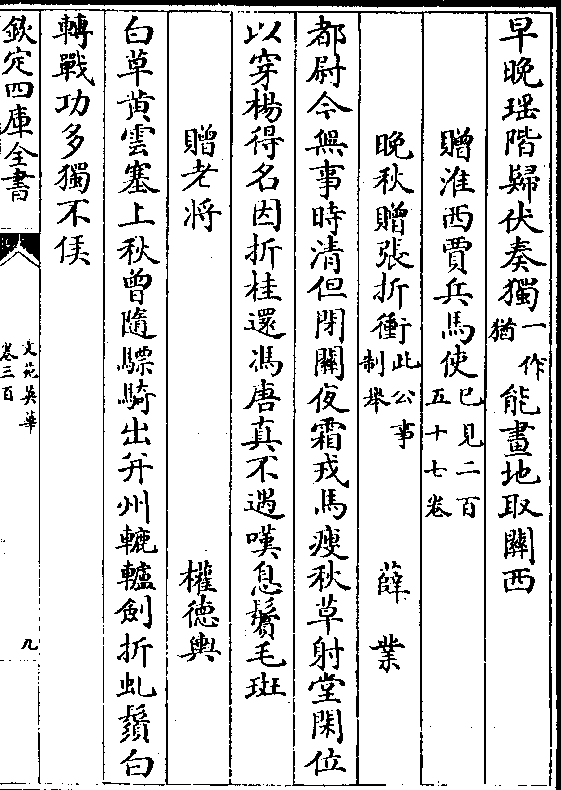 早晚瑶階歸伏奏獨一作猶能畫地取關西
贈淮西賈兵馬使已見二百五十七卷
晚秋贈張折衝此公事制舉 薛業
都尉今無事時清但閉關夜霜戎馬瘦秋草射堂閑位
以穿楊得名因折桂還馮唐真不遇嘆息鬢毛斑
贈老將 權德輿
白草黄雲塞上秋曾隨驃騎出并州轆轤劍折虬鬚白
轉戰功多獨不侯
欽定四庫全書
文苑英華
卷三百
九